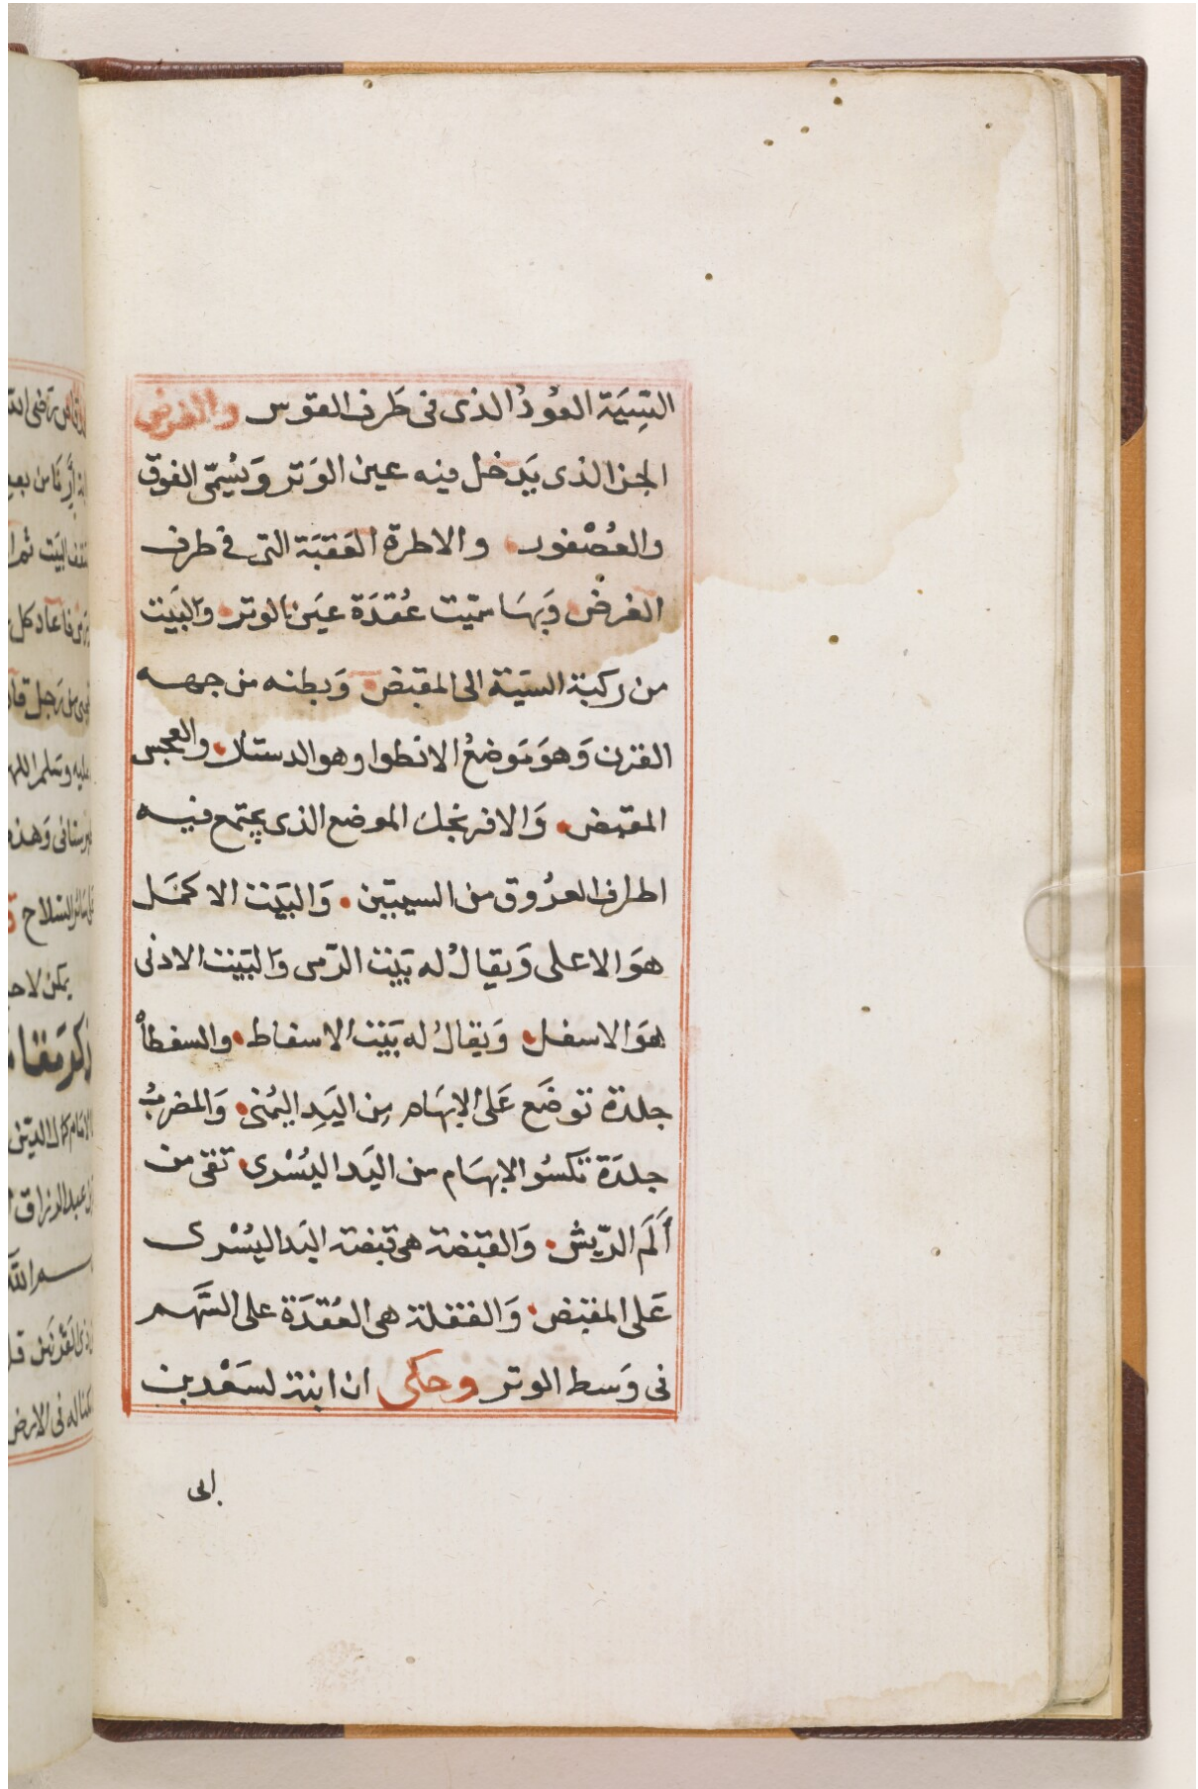 السِيَة العُودُ الذى فى طَرف القوس والفرض
الحز الذى يَدخل فيه عين الوَتر وَيُسمّى الفوق
والعُصْفور والاطرة العَقَبَة التى فى طرف
الفرض وَبهَا سمّيت عُقدَة عَين الوتر والبَيت
من ركبة السيَة الى المقبض وَبطنه من جهه
القرن وَهوَ مَوضعُ الانطوا وهو الدستك والعجس
المقبض وَالافرنجك الموضع الذى يجتمع فيه
اطراف العرُوق من السيتين وَالبَيت الاكمَل
هوَ الاعلى وَيقالُ له بَيت الرّمى وَالبَيت الادنى
هوَ الاسفل وَيقالُ له بَيت الاسقاط والسفطأ
جلدة توضَع عَلى الابهَام مِن اليَدِ اليُمنى وَالمضربُ
جلدَة تكسُو الابهَام من اليَد اليُسْرى تقى من
أَلَم الرّيش وَالقبضة هى قبضة اليَد اليُسْرى
عَلى المقبض وَالقفلة هى العُقدَة على السَّهم
فى وَسط الوتر وحكى ان ابنة لسَعْد بن
ابى